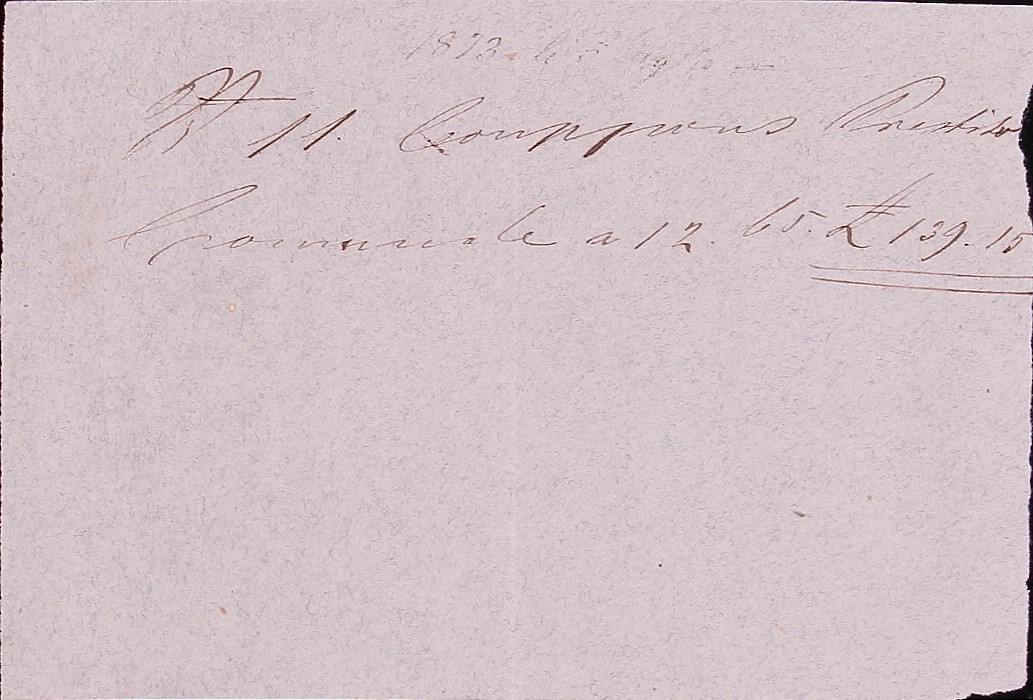 1873. li 5 agto
No 11. Couppons Prestito
Comunale a 12. 65. £ 139. 15